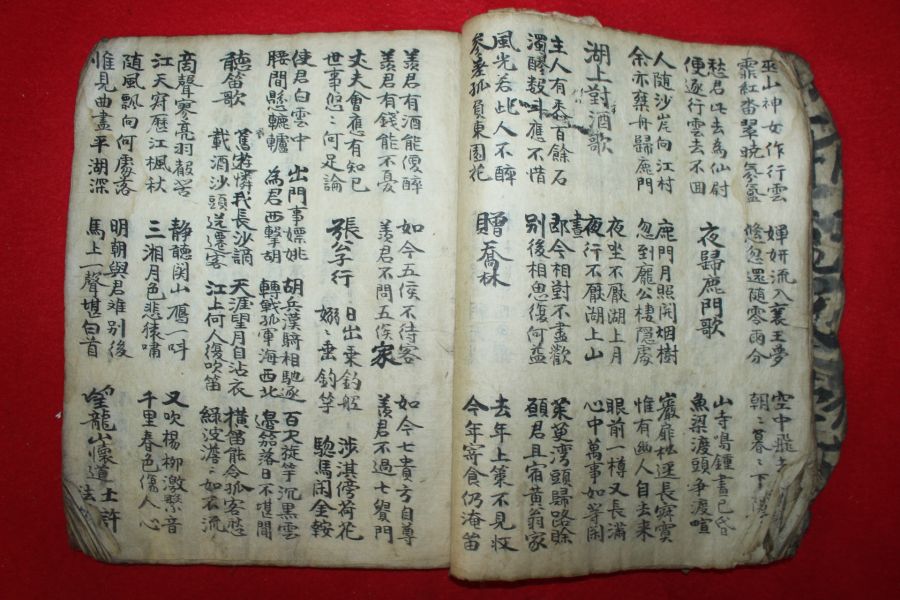 巫山神女作行雲 嬋妍流入襄王夢 空中飛去
霏紅沓翠曉氛氳 倏忽還隨零雨分 朝々暮々下陽
愁君此去為仙尉
便逐行雲去不回 夜歸鹿門歌 山寺鳴鍾晝已昏
魚梁渡頭爭渡喧
人隨沙岸向江村 鹿門月照開烟樹 巖扉松逕長寂寞
余亦乘舟歸鹿門 忽到龐公棲隱處 惟有幽人自去來
湖上對酒歌 夜坐不厭湖上月 眼前一樽又長滿
夜行不厭湖上山 心中萬事如等閑
主人有黍百餘石 即今相對不盡歡 茱萸灣頭歸路賖
濁醪數斗應不惜 别後相思復何益 願君且宿黃翁家
風光若此人不醉 贈喬林 去年上策不見收
參差孤負東園花 今年寄食仍淹笛
羨君有酒能便醉 如今五侯不待客 如今七貴方自尊
羨君有錢能不憂 羨君不問五侯家 羨君不過七貴門
丈夫會應有知已 張公子行 日出乘釣舩 涉淇傍荷花
世事悠々何足論 嫋々垂釣竿 驄馬閑金鞍
使君白雲中 出門事嫖姚 胡兵漢騎相馳逐 百丈竿沉黒雲
腰間懸轆轤 為君西擊胡 轉戰孤軍海西北 邊笳落日不堪聞
聽笛歌 舊遊憐我長沙謫 天涯望月自沾衣 橫笛能令孤客愁
載酒沙頭送遷客 江上何人復吹笛 綠波澹々如不流
商聲寥亮羽聲苦 靜聽関山聞一呌 又吹楊柳激繁音
江天寂歷江楓秋 三湘月色悲猿嘯 千里春色傷人心
随風飄向何處落 明朝與君难别後
惟見曲盡平湖深 馬上一聲堪白首 望龍山懷道士許法